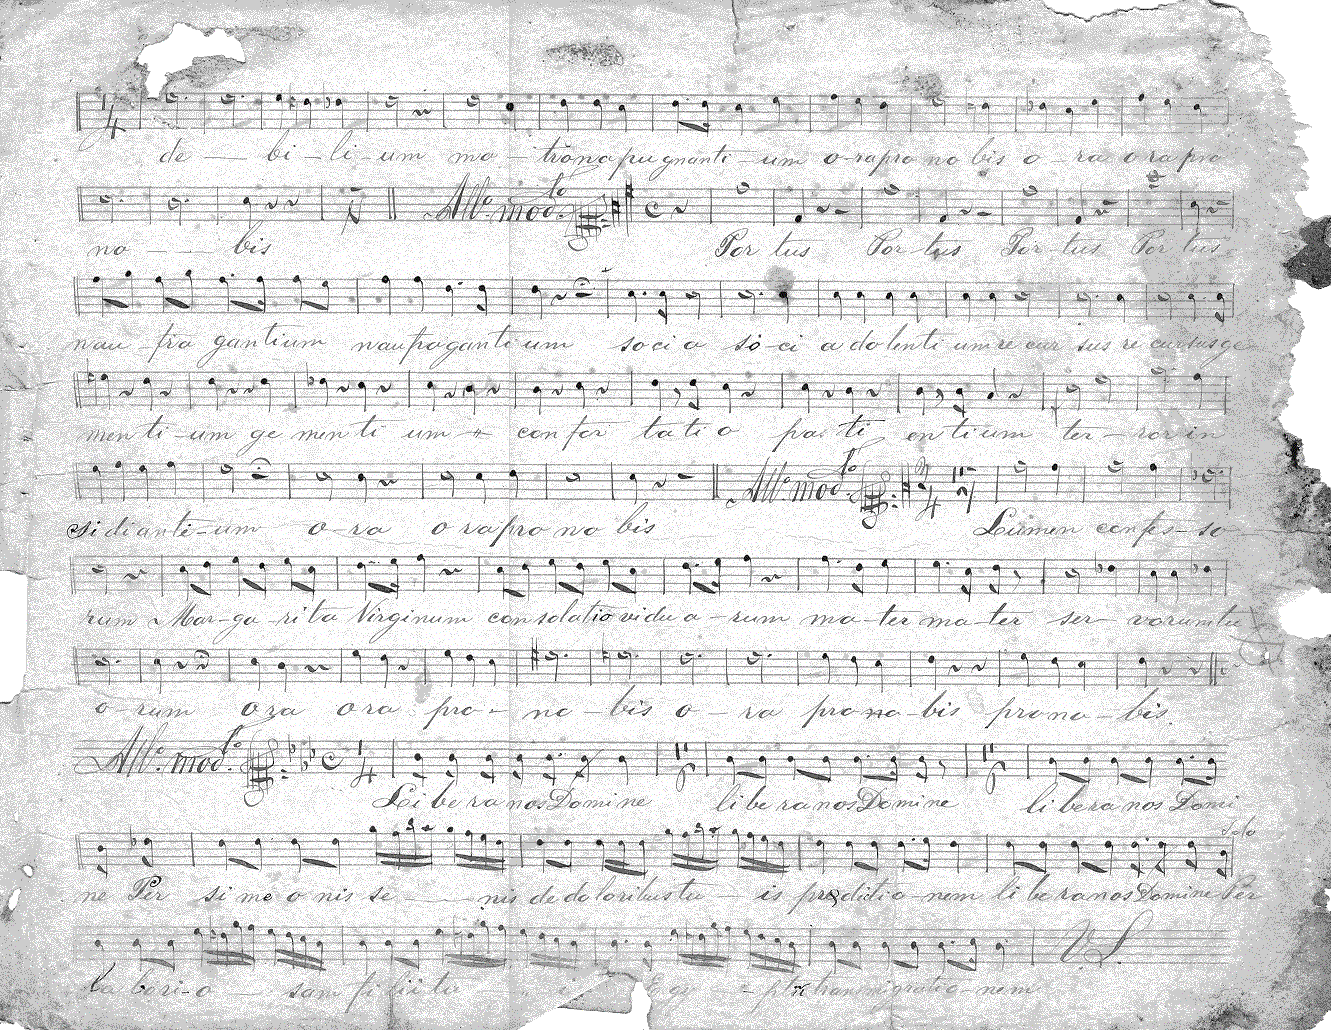 de — bi – li – um ma – trona pugnanti – um o – ra pro no bis o – ra ora pro
no — bis All.º mod.to Por tus Por – tus Por – tus Por tus
nau – fra gantium naufraganti um soci a so – ci a dolenti um re cur sus re cursus ge
men ti – um ge men ti um con for ta ti o pa ti en tium ter – ror in
si di anti – um o – ra o ra pro no bis All.º mod.to Lumen confes – so
rum Mar – ga – ri ta Virginum con solatio vidu a – rum ma – ter ma – ter ser – vorum tu
o – rum o ra o ra pro – no – bis o – ra pro no – bis pro no – bis.
All.º mod.to Li be ra nos Domine li be ra nos Domine li be ra nos Domi
solo
ne Per si me o nis se — nis de do loribus tu – is predictio – nem li be ra nos Domine Per
la bori – o — sam fu – ii tu Egy – p transmigratio – nem
V. S.